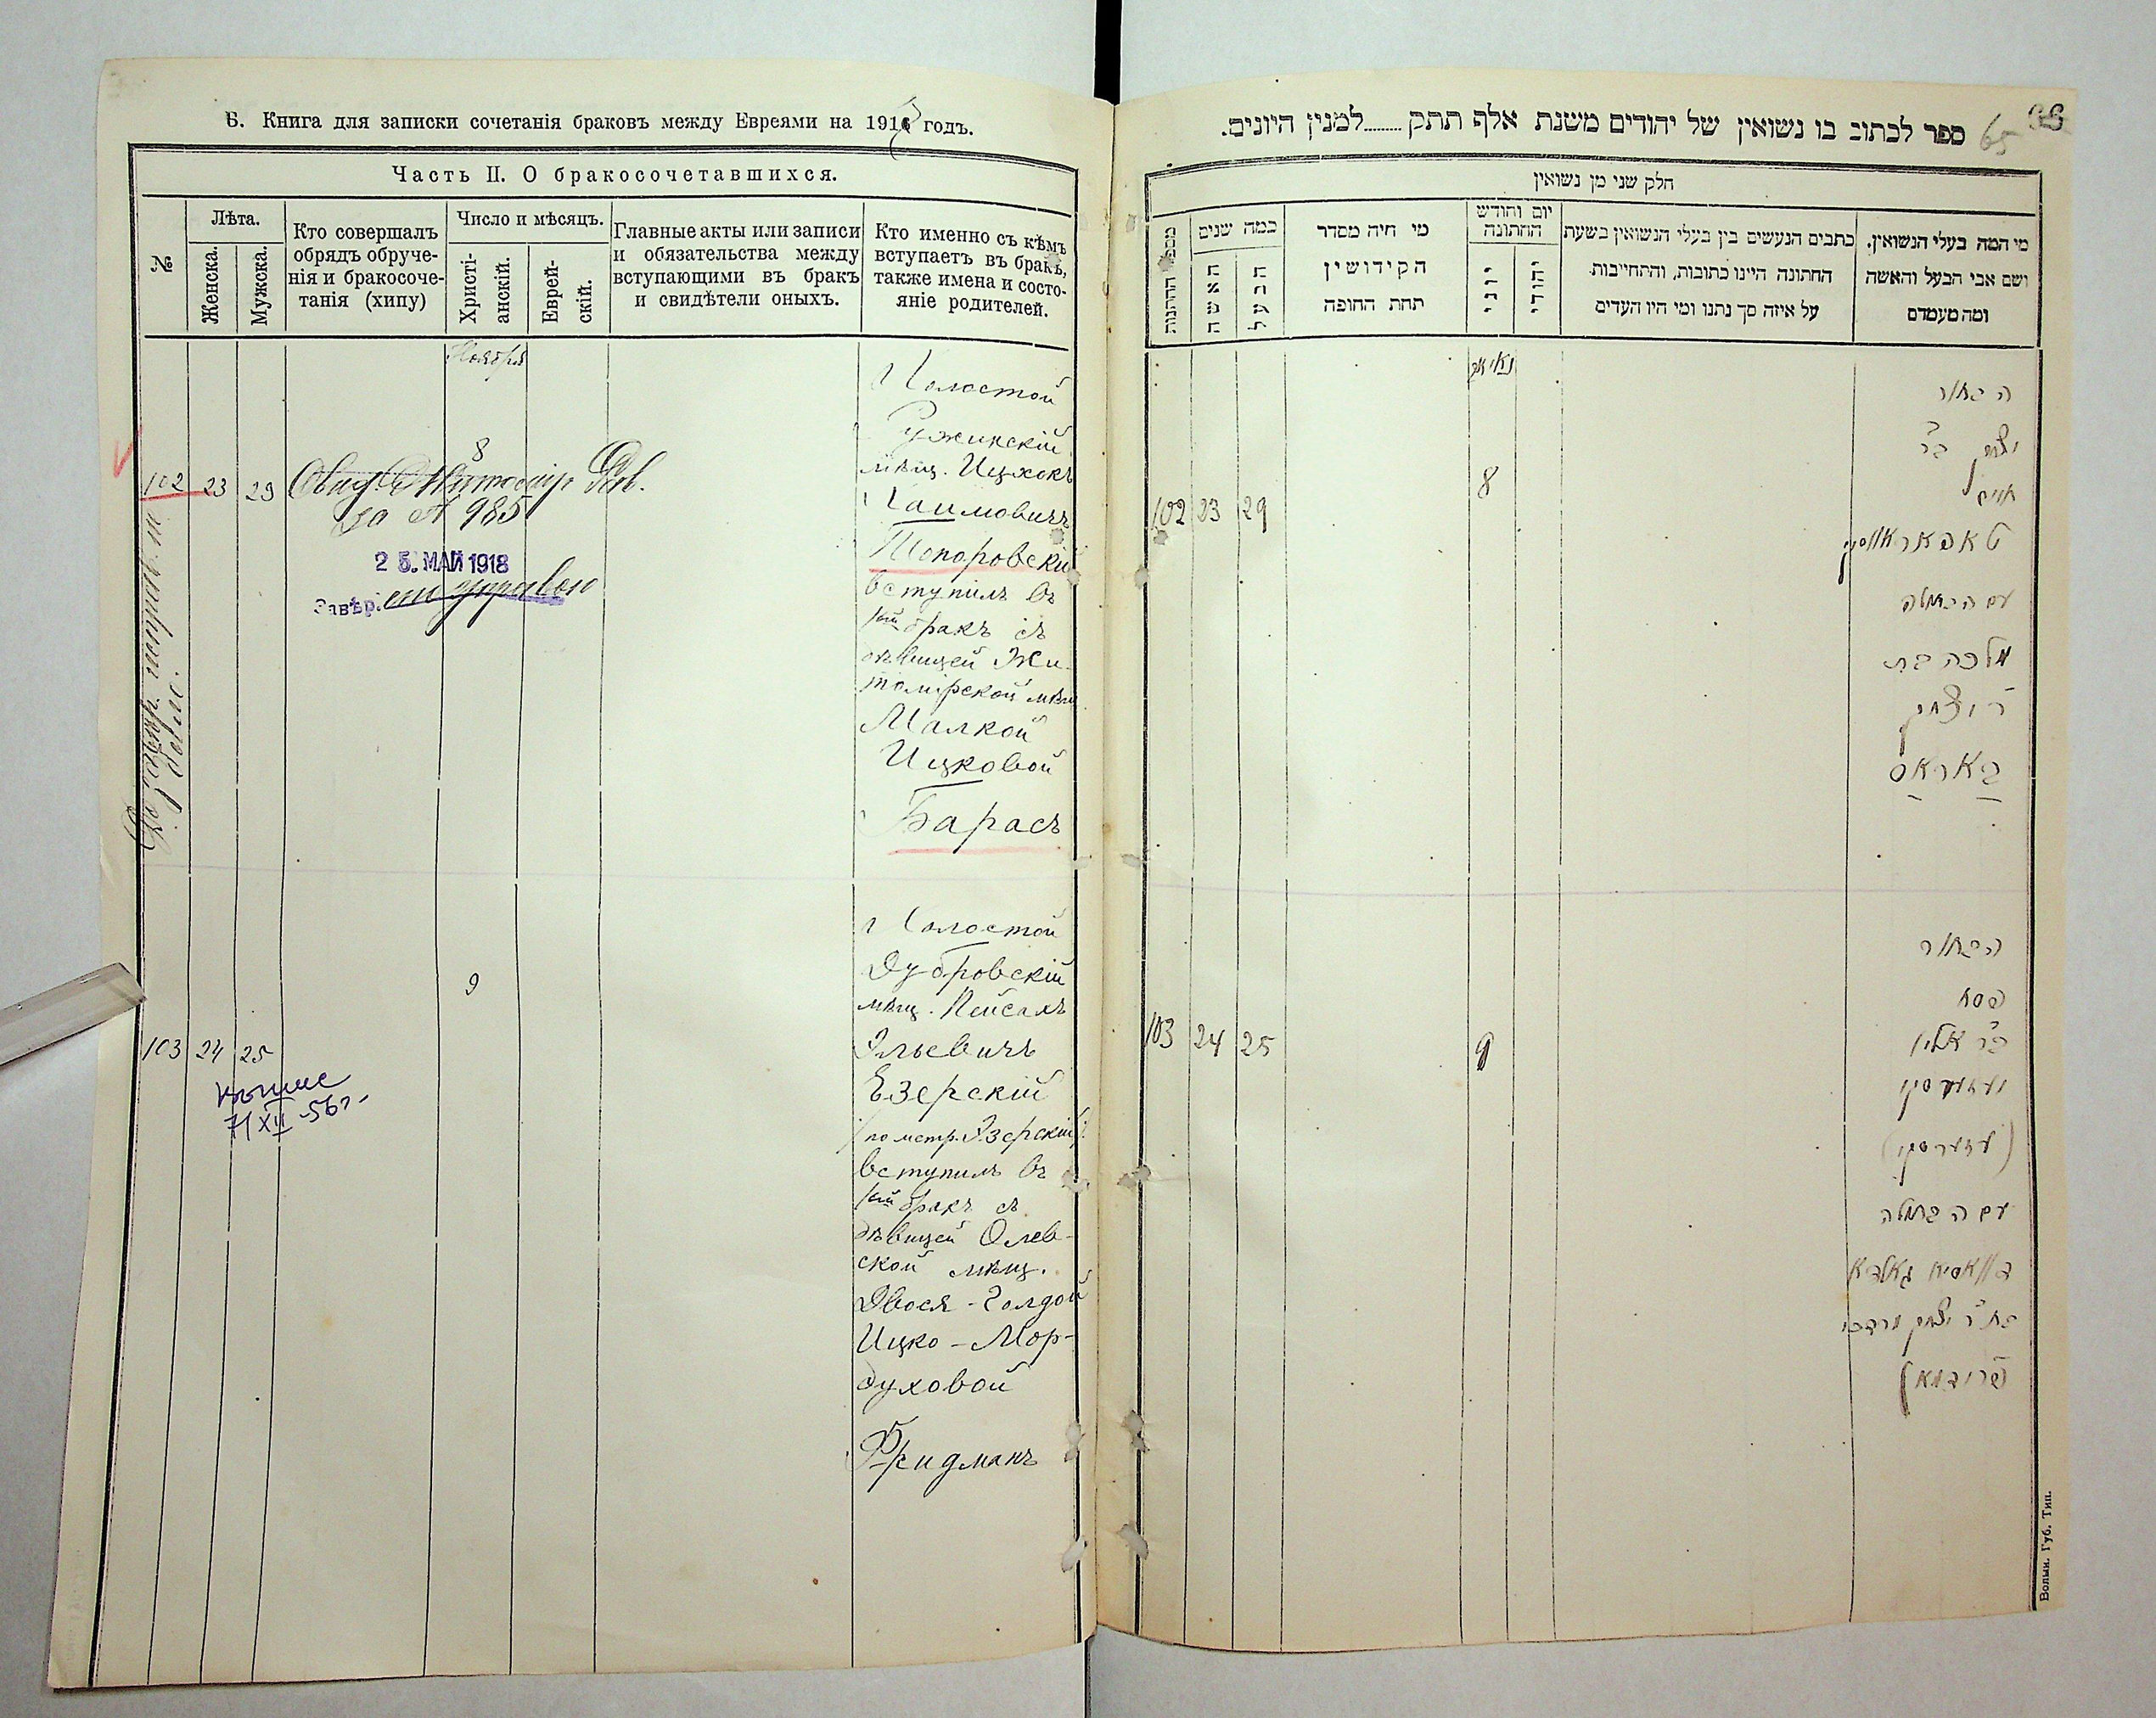 Б. Книга для записки сочетанія браковъ между Евреями на 1917 годъ.
Часть II. О бракосочетавшихся.
№
Лѣта.
Женска.
Мужска.
Кто совершалъ
обрядъ обруче-
нія и бракосоче-
танія (хипу)
Число и мѣсяцъ.
Христі-
анскій.
Еврей-
скій.
Главные акты или записи
и обязательства между
вступающими въ бракъ
и свидѣтели оныхъ.
Кто именно съ кѣмъ
вступаетъ въ бракъ,
также имена и состо-
яніе родителей.
Ноября
102 23 29
8
за № 985
25. МАЙ 1918
Завѣр.
Холостой
Ружинскій
мѣщ. Ицхокъ
Хаимовичъ
Топоровскій
вступилъ въ
1ый бракъ съ
дѣвицей Жи-
томірской мѣщ
Малкой
Ицковой
Барасъ
103 24 25
9
копие
7/XII-56г-
Холостой
Дубровскій
мѣщ. Пейсахъ
Эльевичъ
Езерскій
(по метр. Эзерскій)
вступилъ въ
1ый бракъ съ
дѣвицей Олев-
ской мѣщ.
Двося-Голдой
Ицко-Мор-
духовой
Фридманъ
65
ספר לכתוב בו נשואין של יהודים משנת אלף תתק........למנין היונים.
חלק שני מן נשואין
מי המה בעלי הנשואין,
ושם אבי הבעל והאשה
ומה מעמדם
כתבים הנעשים בין בעלי הנשואין בשעת
החתונה היינו כתובות, והתחייבות
על איזה סך נתנו ומי היו העדים
יום וחודש
החתונה
יהודי
יוני
מי היה מסדר
הקידושין
תחת החופה
כמה שנים
הבעל
האשה
מספר החתונות
102 23 29
8
הבחור
יצחק בר
חיים
טאפאראווסקי
עם הבתולה
מלכה בת
ר' יצחק
באראס
103 24 25
9
הבחור
פסח
בר אליהו
יעזערסקי
(עזערסקי)
עם הבתולה
דוואסיא גאלדא
בת ר' יצחק מרדכי
פרידמאן
Волын. Губ. Тип.